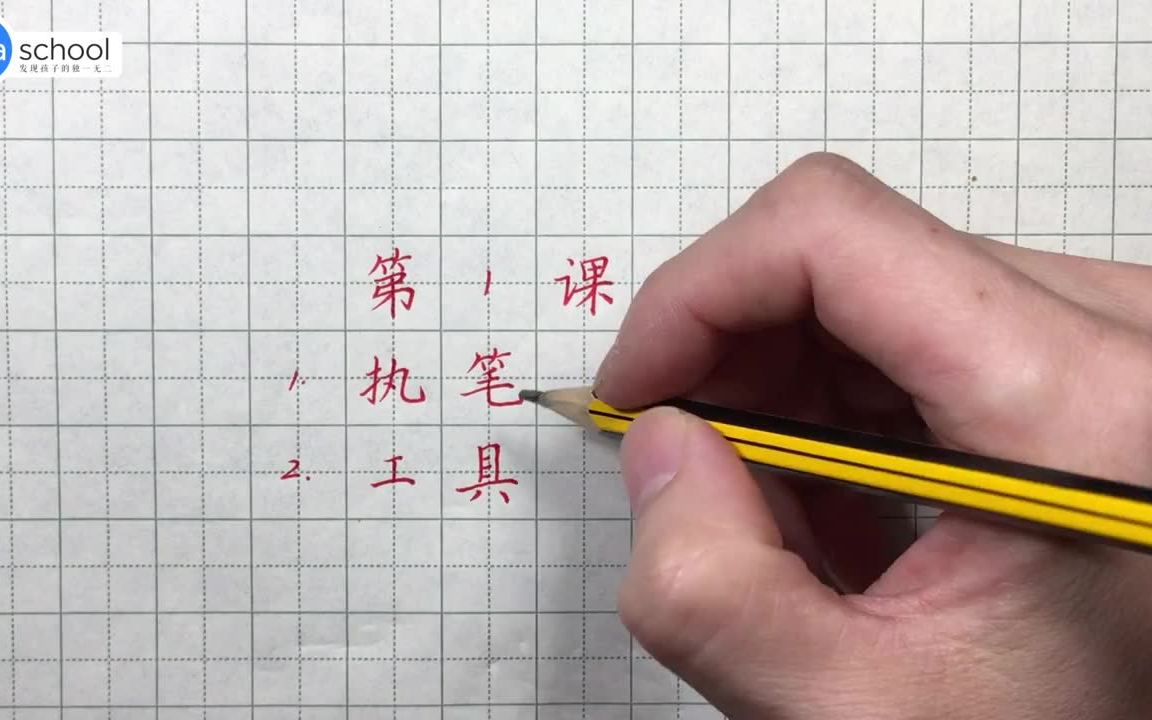 a school
发现孩子的独一无二
第1课
1. 执笔
2. 工具